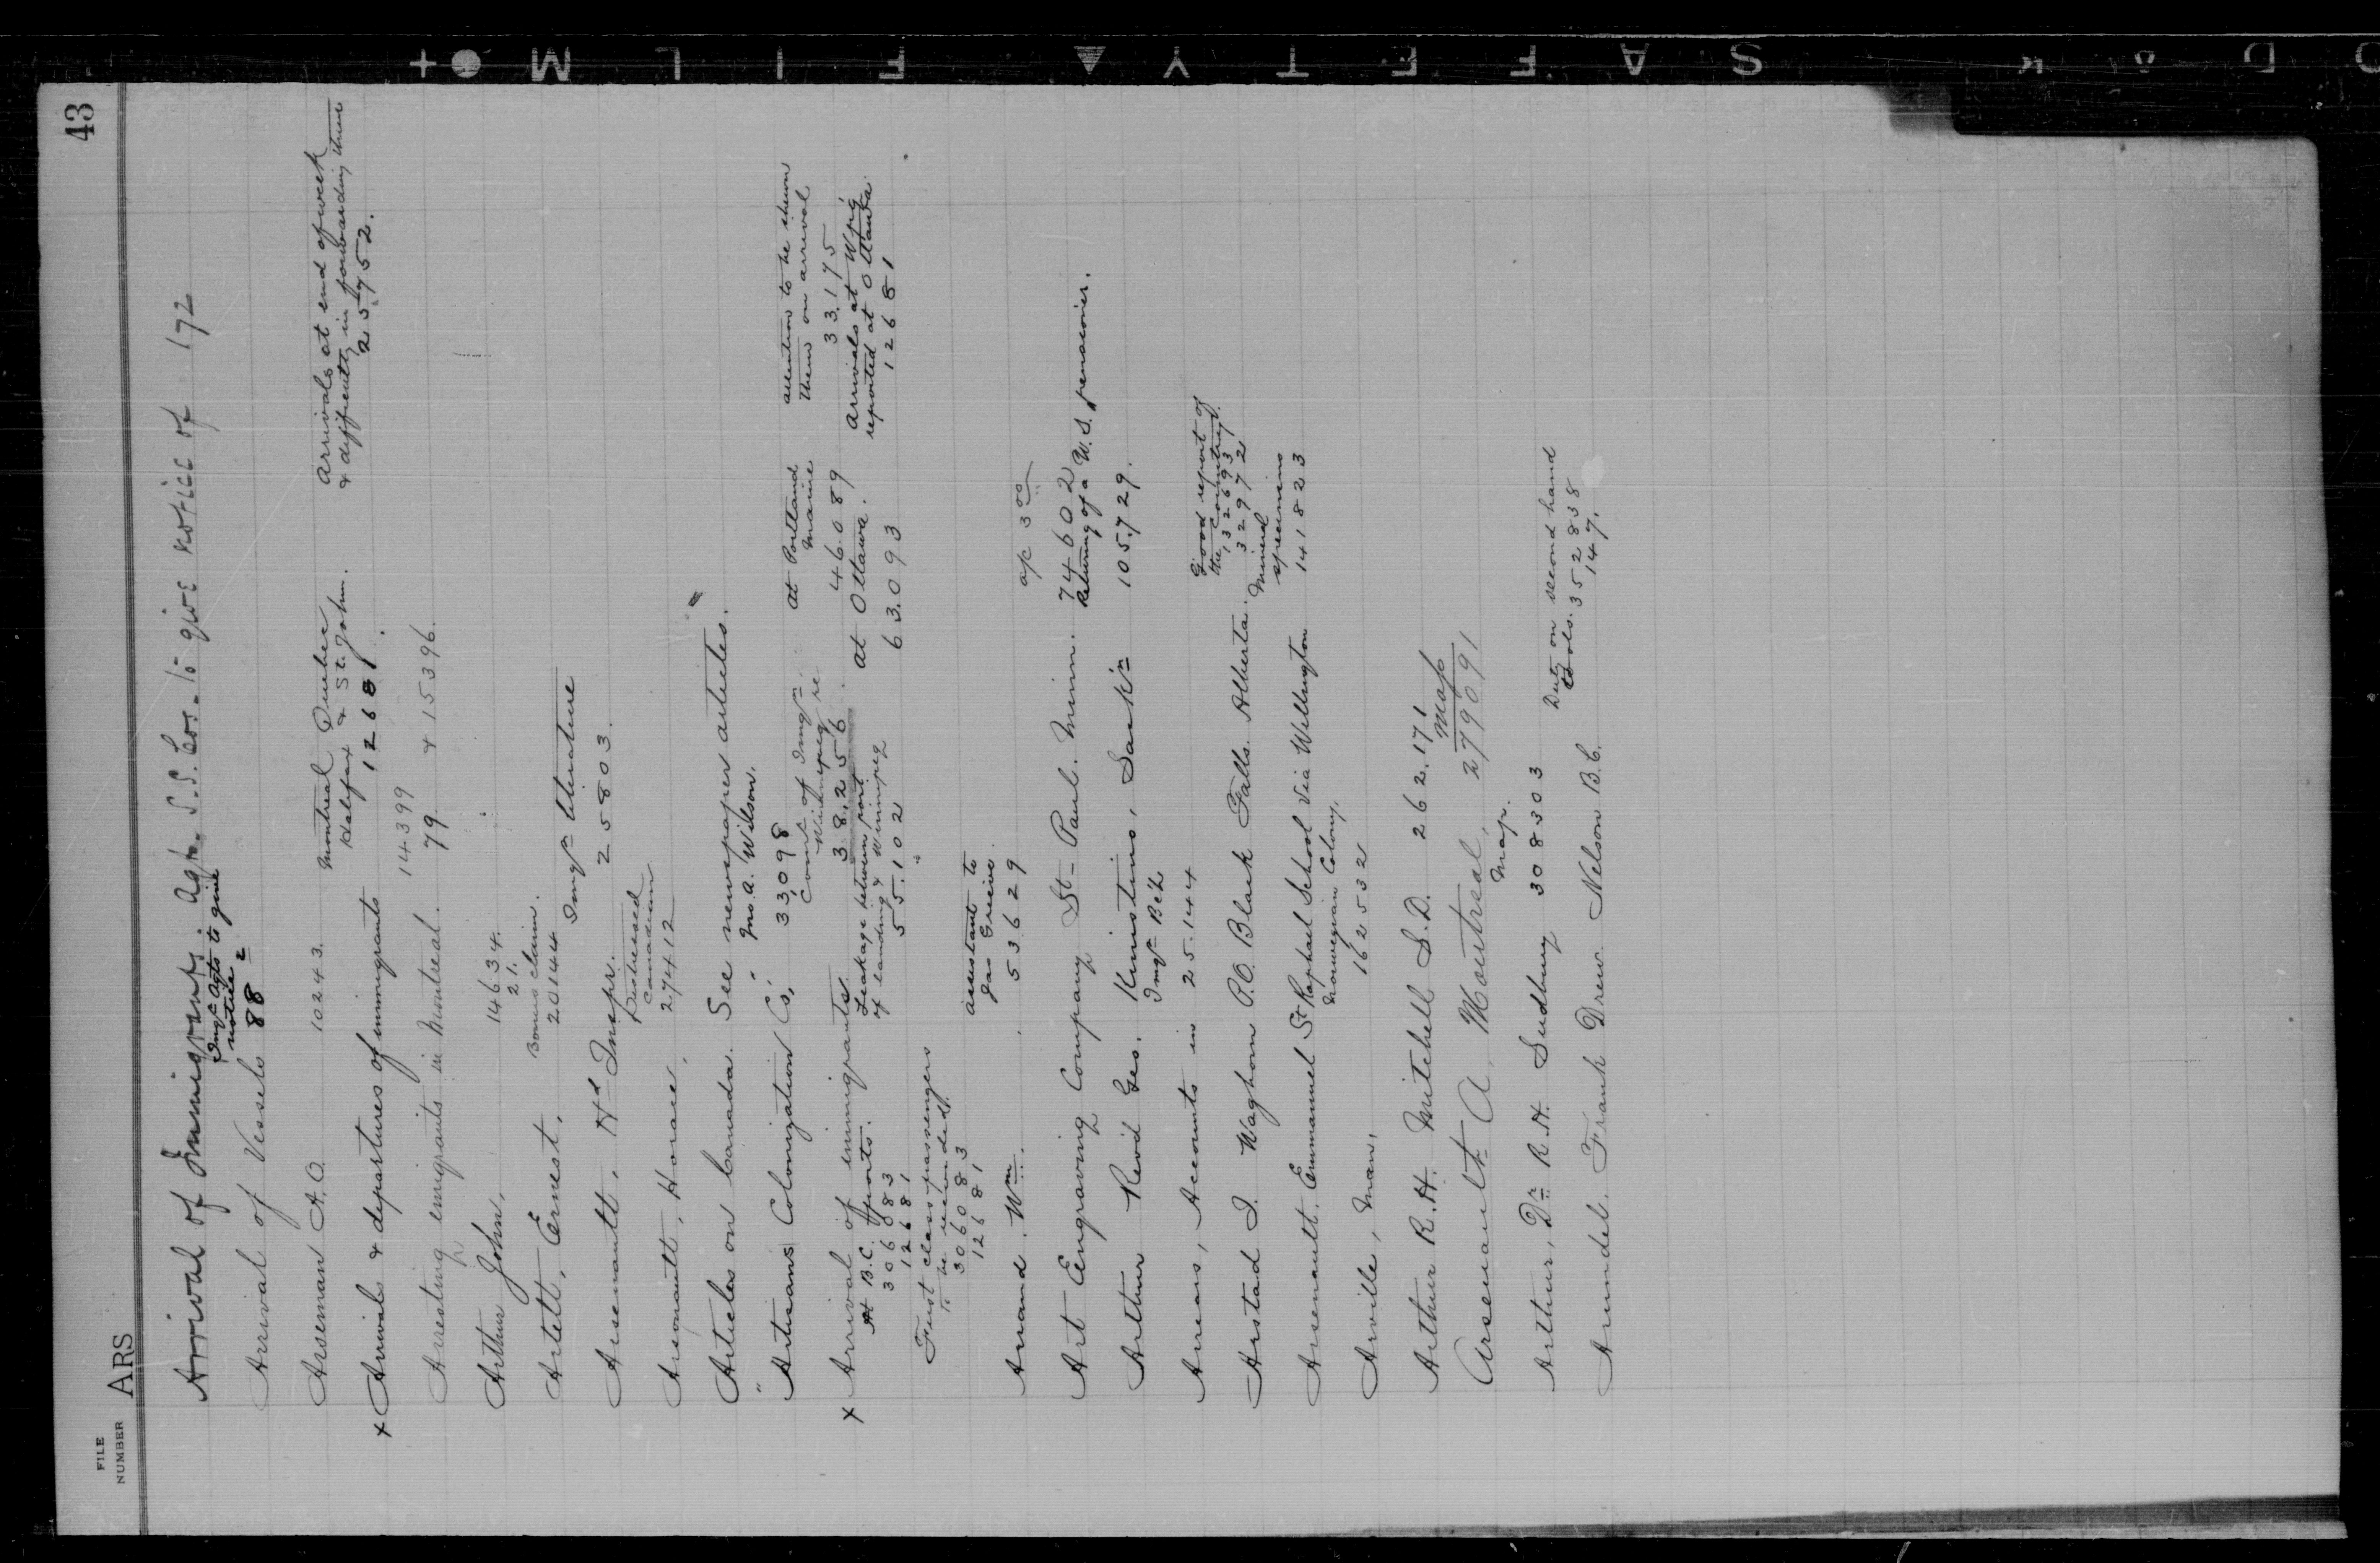 43
FILE
NUMBER
ARS
Arrival of Immigrants. Agts. S.S. Cos. to give notice of 172
Imgn Agts to give
notice
Arrival of Vessels 88
Arseman A.O. 10243.
Montreal Quebec
Halifax & St. John.
12681.
Arrivals at end of week
& difficulty in forwarding them
25752.
x Arrivals & departures of immigrants
14399
Arresting emigrants in Montreal. 79 & 15396.
Arthur John, 14634.
21.
Bonus claim.
Artett, Ernest, 20144
Imgn literature
Arsenault, Hd Inspr. 255803.
Distressed
Canadian
Arsenault, Horace, 27412
Articles on Canada. See newspaper articles.
Jno. A. Wilson.
" Artisans Colonization Co. 33098
Comr. of Imgn.
Winnipeg re
38.256.
at Portland
Maine
46.089
attention to be shewn
them on arrival
33.175
x Arrival of immigrants
At B.C. ports.
306083
12681
Leakage between port
of landing & Winnipeg
55.102
at Ottawa.
63.093
Arrivals at Wpg
reported at Ottawa
12681
First class passengers
to be recorded
306083
12681
assistant to
Jas Grieve.
Arrand. Wm. 53629
op 3.00
Art Engraving Company St. Paul. Minn. 74602
Returning of a U.S. pensioner.
Arthur Rev'd Geo. Kinistino, Sask'n 105.729.
Imgn Bch
Arrears, Accounts in 25.144
Good report of
the country
132693
Arstad I. Waghorn P.O. Black Falls. Alberta. 32972
Mineral
specimens
Arsenault. Emmanuel St Raphael School Via Wellington 141823
Norwegian Colony.
Arville, Man, 162532
Arthur R.H. Mitchell S.D. 262.171
Map
Arsenault A, Montreal, 279091
Map.
Arthur, Dr. R.H. Sudbury 308303
Duty on second hand
tools. 352838
Arundel. Frank Drew Nelson B.C. 147.